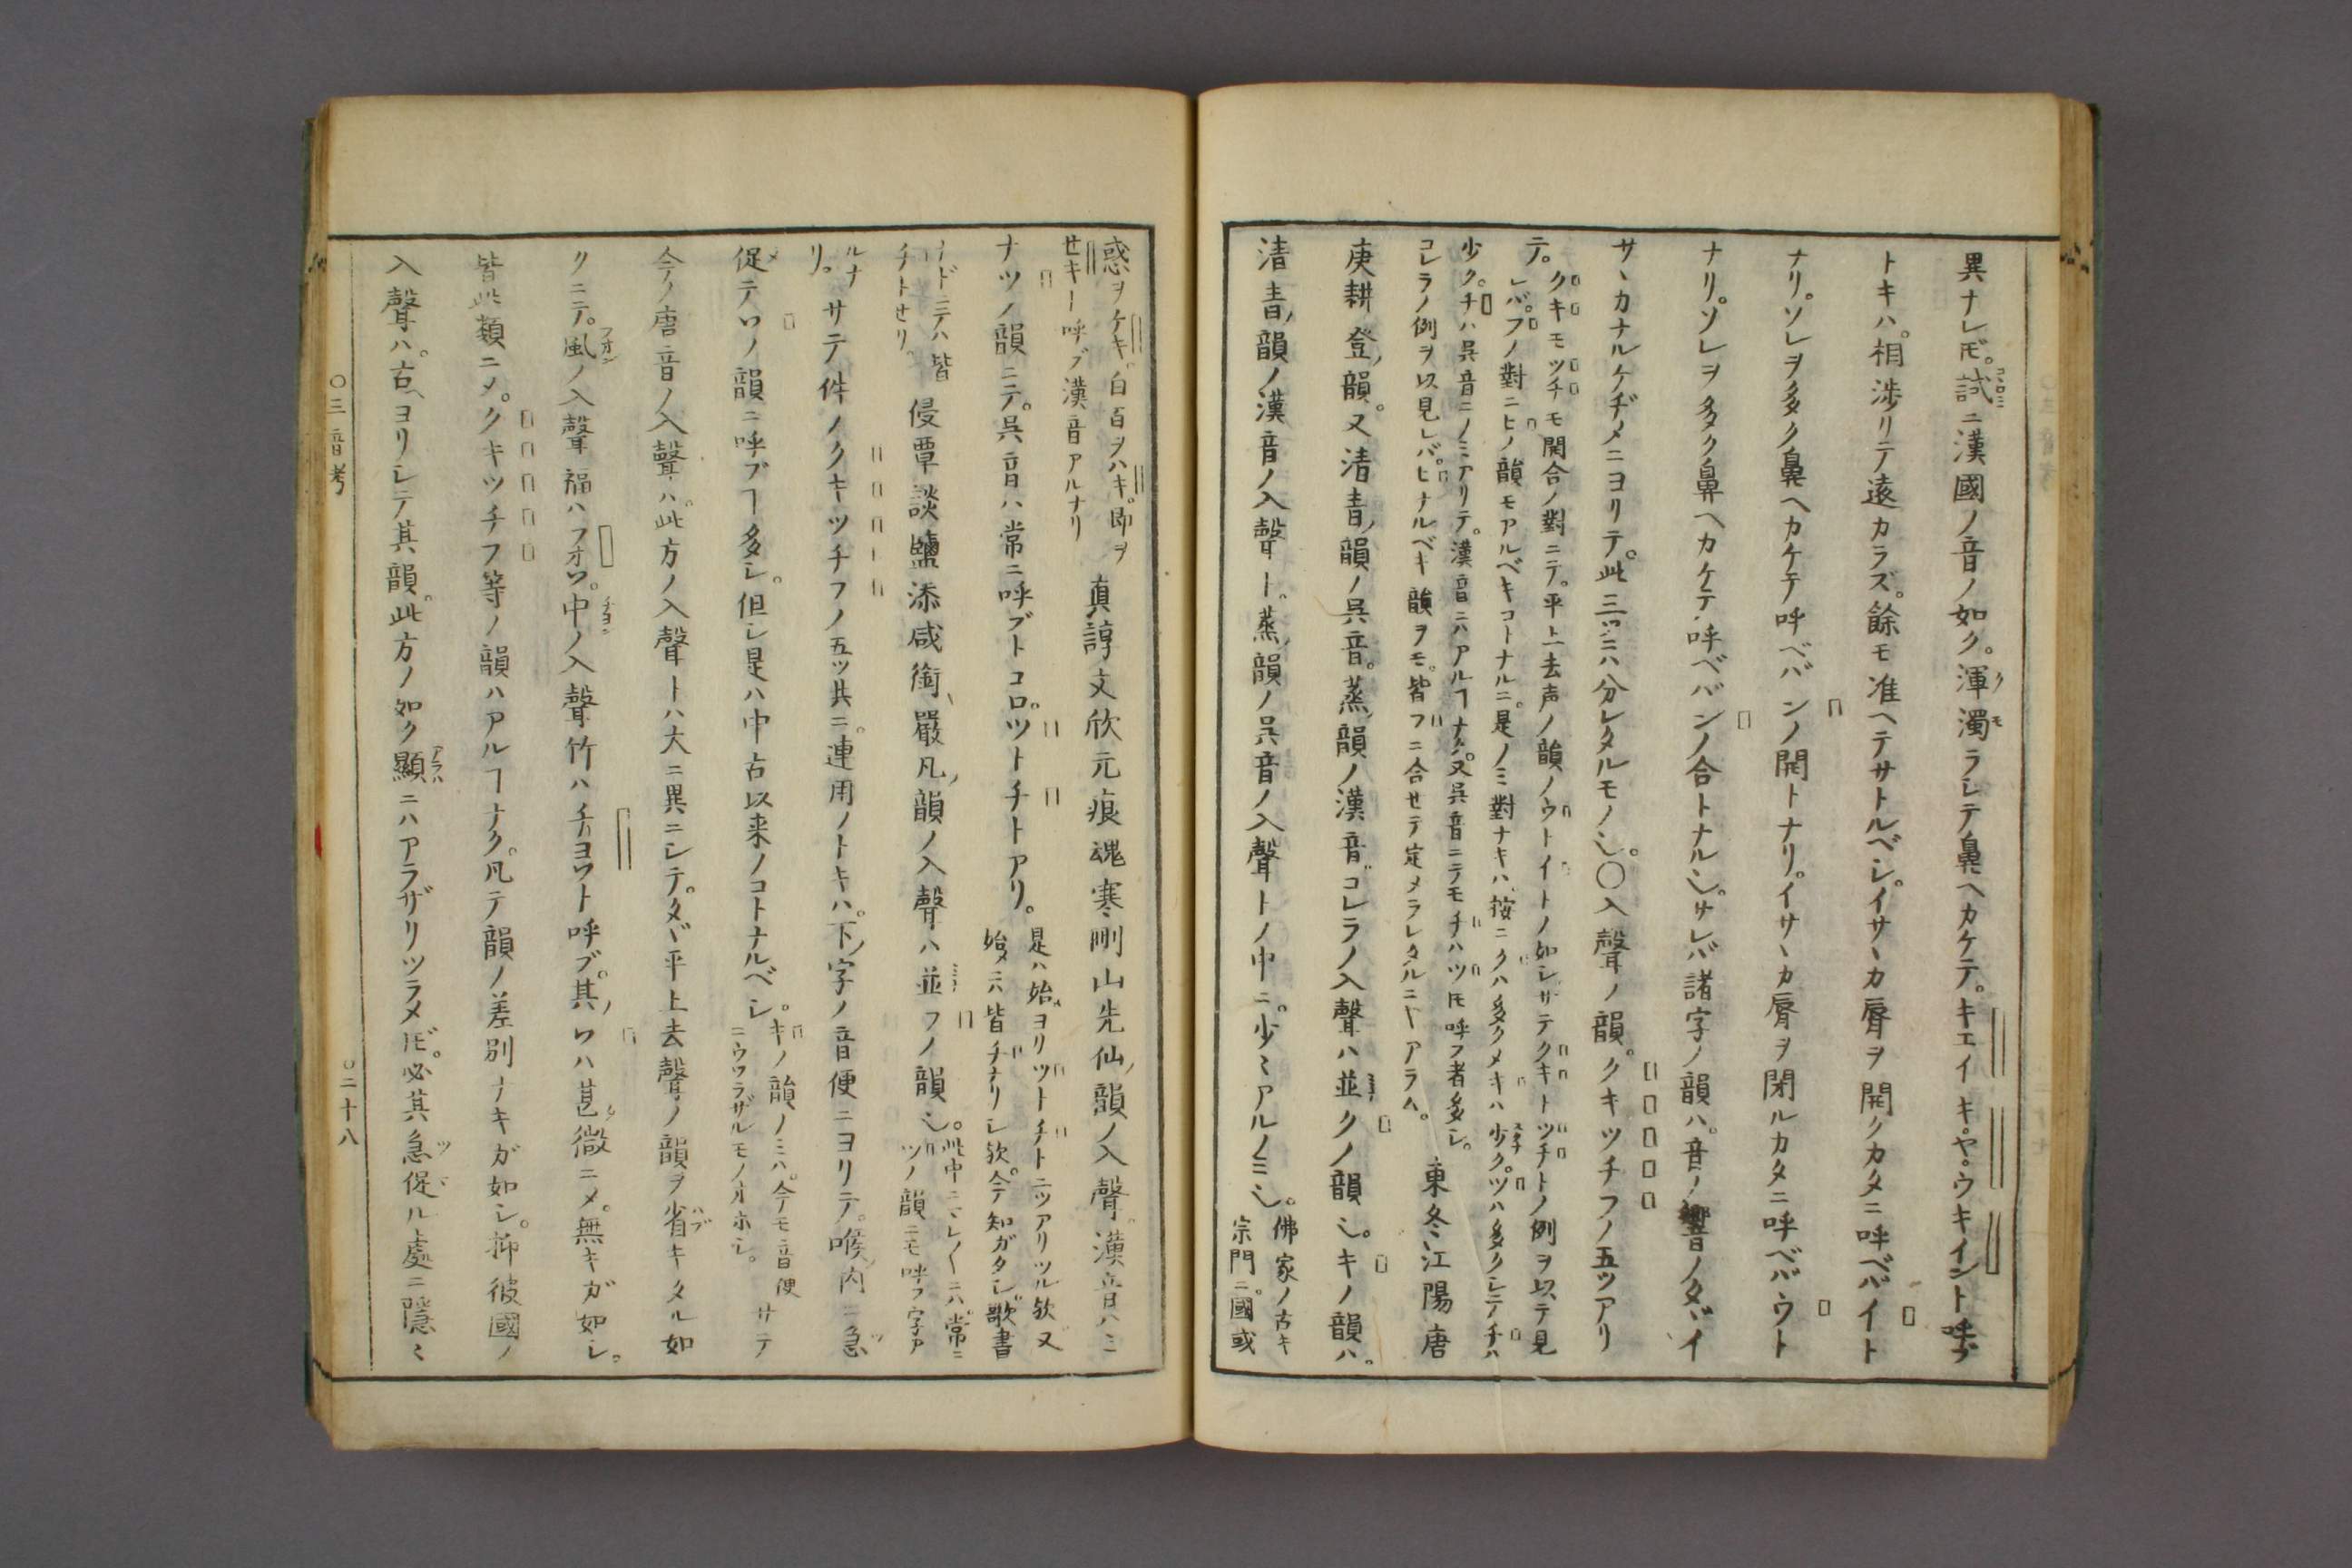 異ナレ𪜈。試ニ漢國ノ音ノ如ク。渾濁ラシテ鼻ヘカケテ。キエイキヤウキイント呼ブ
トキハ。相渉リテ遠カラズ。餘モ准ヘテサトルベシ。イサヽカ脣ヲ開クカタニ呼ベバイト
ナリ。ソレヲ多ク鼻ヘカケテ呼ベバンノ開トナリ。イサヽカ脣ヲ閉ルカタニ呼ベバウト
ナリ。ソレヲ多ク鼻ヘカケテ呼ベバンノ合トナル也。サレバ諸字ノ韻ハ。音ノ響ノタヾイ
サヽカナルケヂメニヨリテ。此三ツニハ分レタルモノ也。〇入聲ノ韻。クキツチフノ五ツアリ
テ。
クキモツチモ開合ノ對ニテ。平上去声ノ韻ノウトイトノ如シサテクキトツチトノ例ヲ以テ見
レバ。フノ對ニヒノ韻モアルベキコトナルニ。是ノミ對ナキハ、按ニクハ多クメキハ少ク。ツハ多クシテチハ
少ク。チハ呉音ニノミアリテ。漢音ニハアルヿナク。又呉音ニテモチハツ𪜈呼フ者多シ。
コレラノ例ヲ以見レバ。ヒナルベキ韻ヲモ。皆フニ合セテ定メラレタルニヤアラム。
東冬江陽唐
庚耕登ノ韻。又清青ノ韻ノ呉音。蒸ノ韻ノ漢音コレラノ入聲ハ並クノ韻也。キノ韻ハ。
清青ノ韻ノ漢音ノ入聲ト。蒸ノ韻ノ呉音ノ入聲トノ中ニ。少〻アルノミ也。
佛家ノ古キ
宗門ニ。國或
惑ヲケキ。白百ヲハキ。即ヲ
セキト呼ブ漢音アルナリ
真諄文欣元痕魂寒刪山先仙ノ韻ノ入聲。漢音ハミ
ナツノ韻ニテ。呉音ハ常ニ呼ブトコロ。ツトチトアリ。
是ハ始メヨリツトチトニツアリツル欤又
始メニハ皆チナリシ欤。今知ガタシ歌書
ナドニテハ皆
チトセリ。
侵覃談鹽添咸銜嚴凡ノ韻ノ入聲ハ並フノ韻也。
此中ニマレ〱ニハ常ニ
ツノ韻ニモ呼フ字ア
ルナ
リ。
サテ件ノクキツチフノ五ツ共ニ。連用ノトキハ。下ノ字ノ音便ニヨリテ。喉内ニ急
促メテツノ韻ニ呼ブヿ多シ。但シ是ハ中古以来ノコトナルベシ。
キノ韻ノミハ。今モ音便
ニウツラザルモノオホシ。
サテ
今ノ唐音ノ入聲ハ。此方ノ入聲トハ大ニ異ニシテ。タヾ平上去聲ノ韻ヲ省キタル如
クニテ。風ノ入聲福ハフオツ。中ノ入聲竹ハチヨツト呼ブ。其ツハ甚微ニメ。無キガ如シ。
皆此類ニメ。クキツチフ等ノ韻ハアルヿナク。凡テ韻ノ差別ナキガ如シ。抑彼國ノ
入聲ハ。古ヘヨリシテ其韻。此方ノ如ク顯ニハアラザリツラメ𪜈。必其急促ル處ニ隱〻
〇三音考
〇二十八